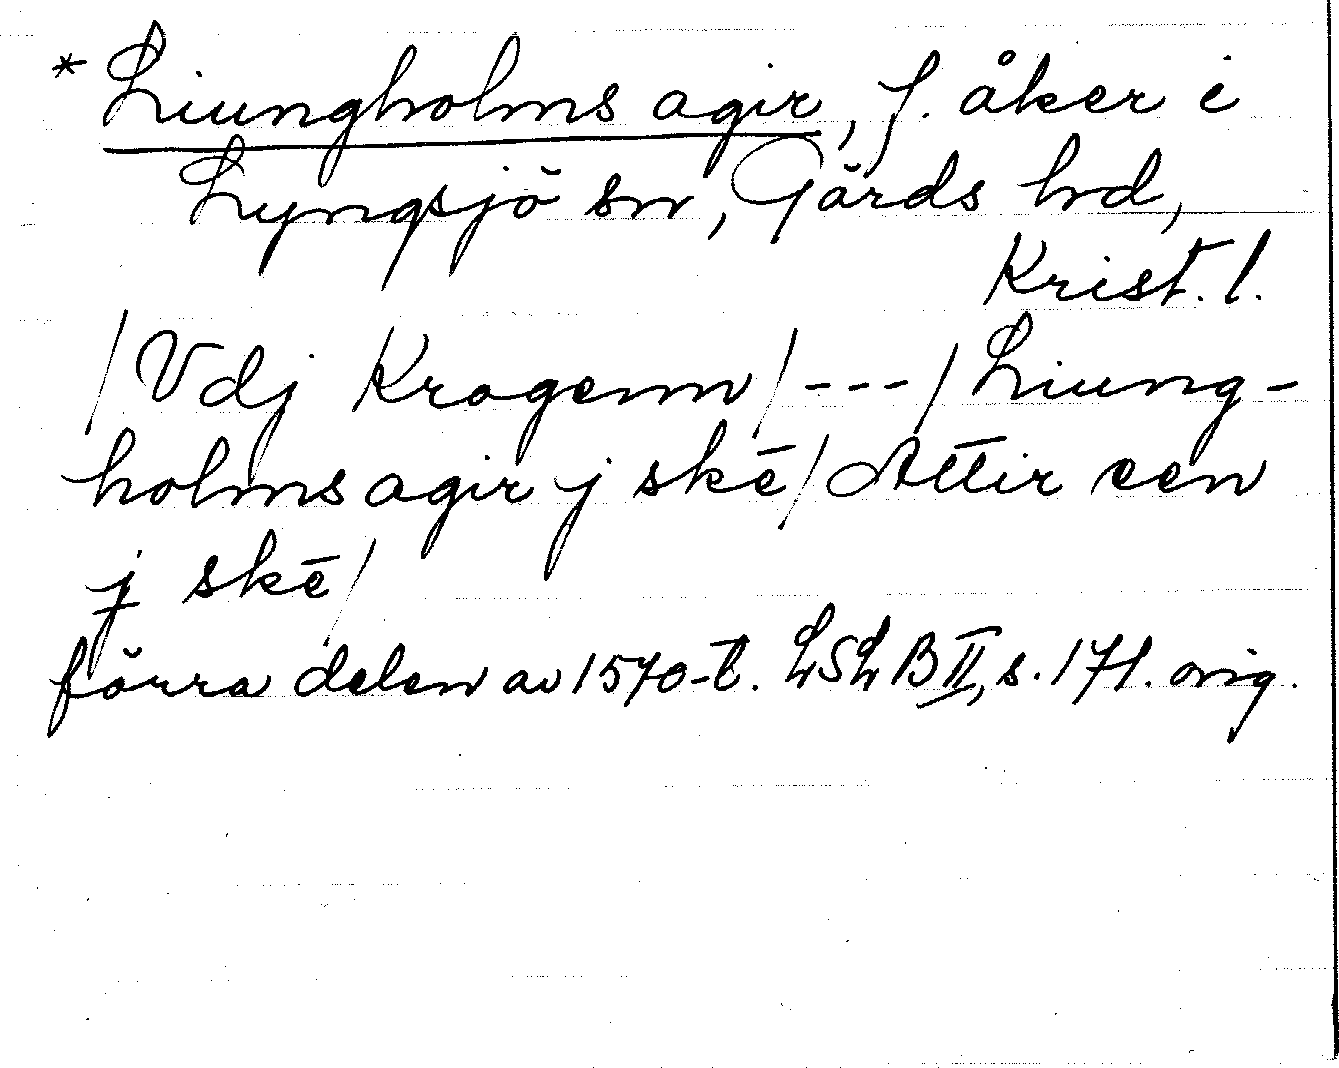 * Liungholms agir, f. åker i
Lyngsjö sn, Gärds hd,
Krist. l.
/ Vdj Kragenn / --- / Liung-
holms agir j skē / Attir een
j skē /
förra delen av 1570-t. LSLB II, s. 171. orig.